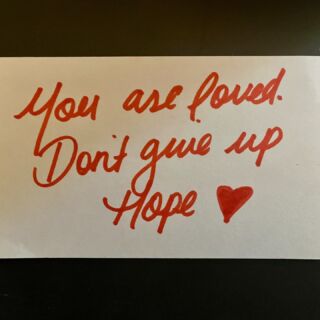 You are loved.
Don't give up
Hope ♥